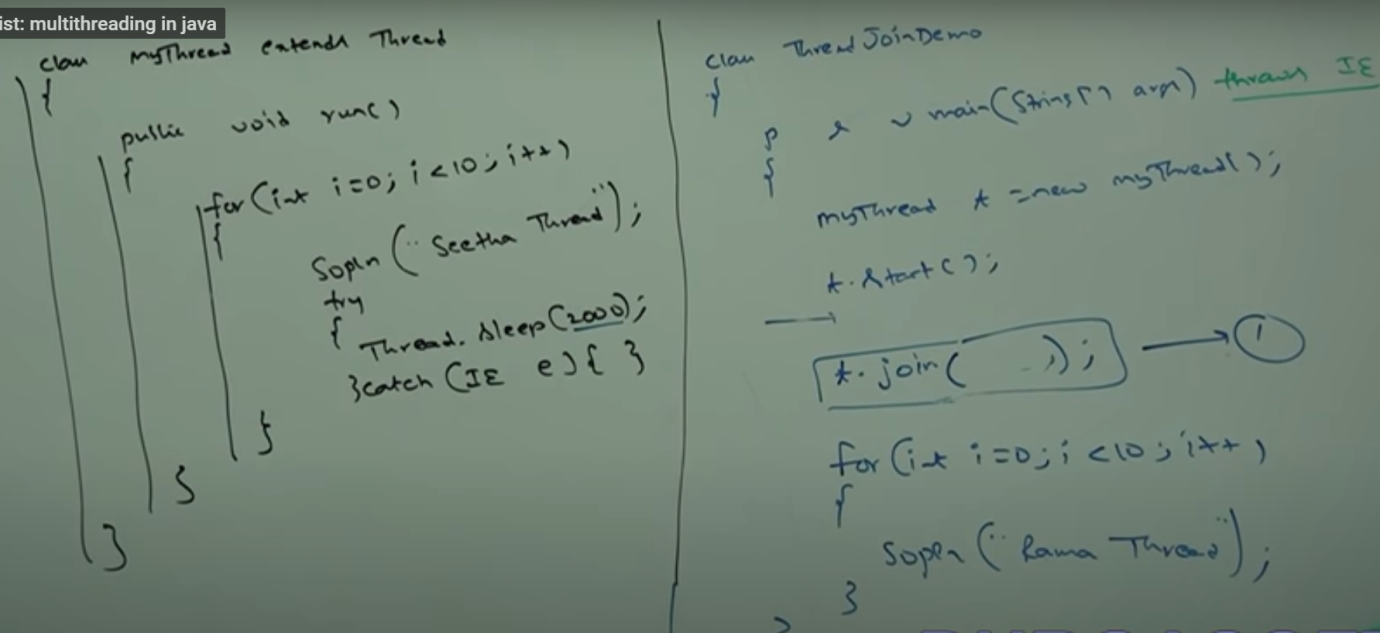 ist: multithreading in java
class myThread extends Thread
{
public void run()
{
for(int i=0; i<10; i++)
{
Sopln("Seetha Thread");
try
{
Thread.sleep(2000);
}catch (IE e){ }
}
}
}
class ThreadJoinDemo
{
p s v main(String[] args) throws IE
{
myThread t = new myThread();
t.start();
t.join( );
1
for(int i=0; i<10; i++)
{
Sopln("Rama Thread");
}